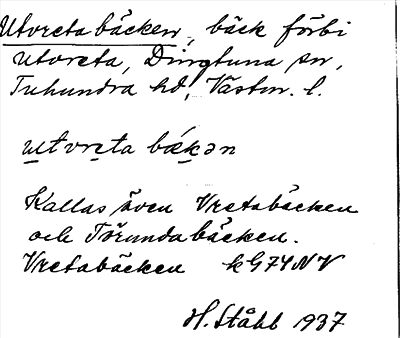 Utvreta bäcken, bäck förbi
Utvreta, Dingtuna sn,
Tuhundra hd, Västm. l.
ωtvreta bækən
Kallas även Vretabäcken
och Törundabäcken.
Vretabäcken kG74NV
H. Ståhl 1937